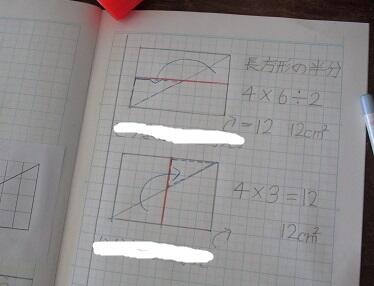 長方形の半分
4×6÷2
=12 12cm²
4×3=12
12cm²